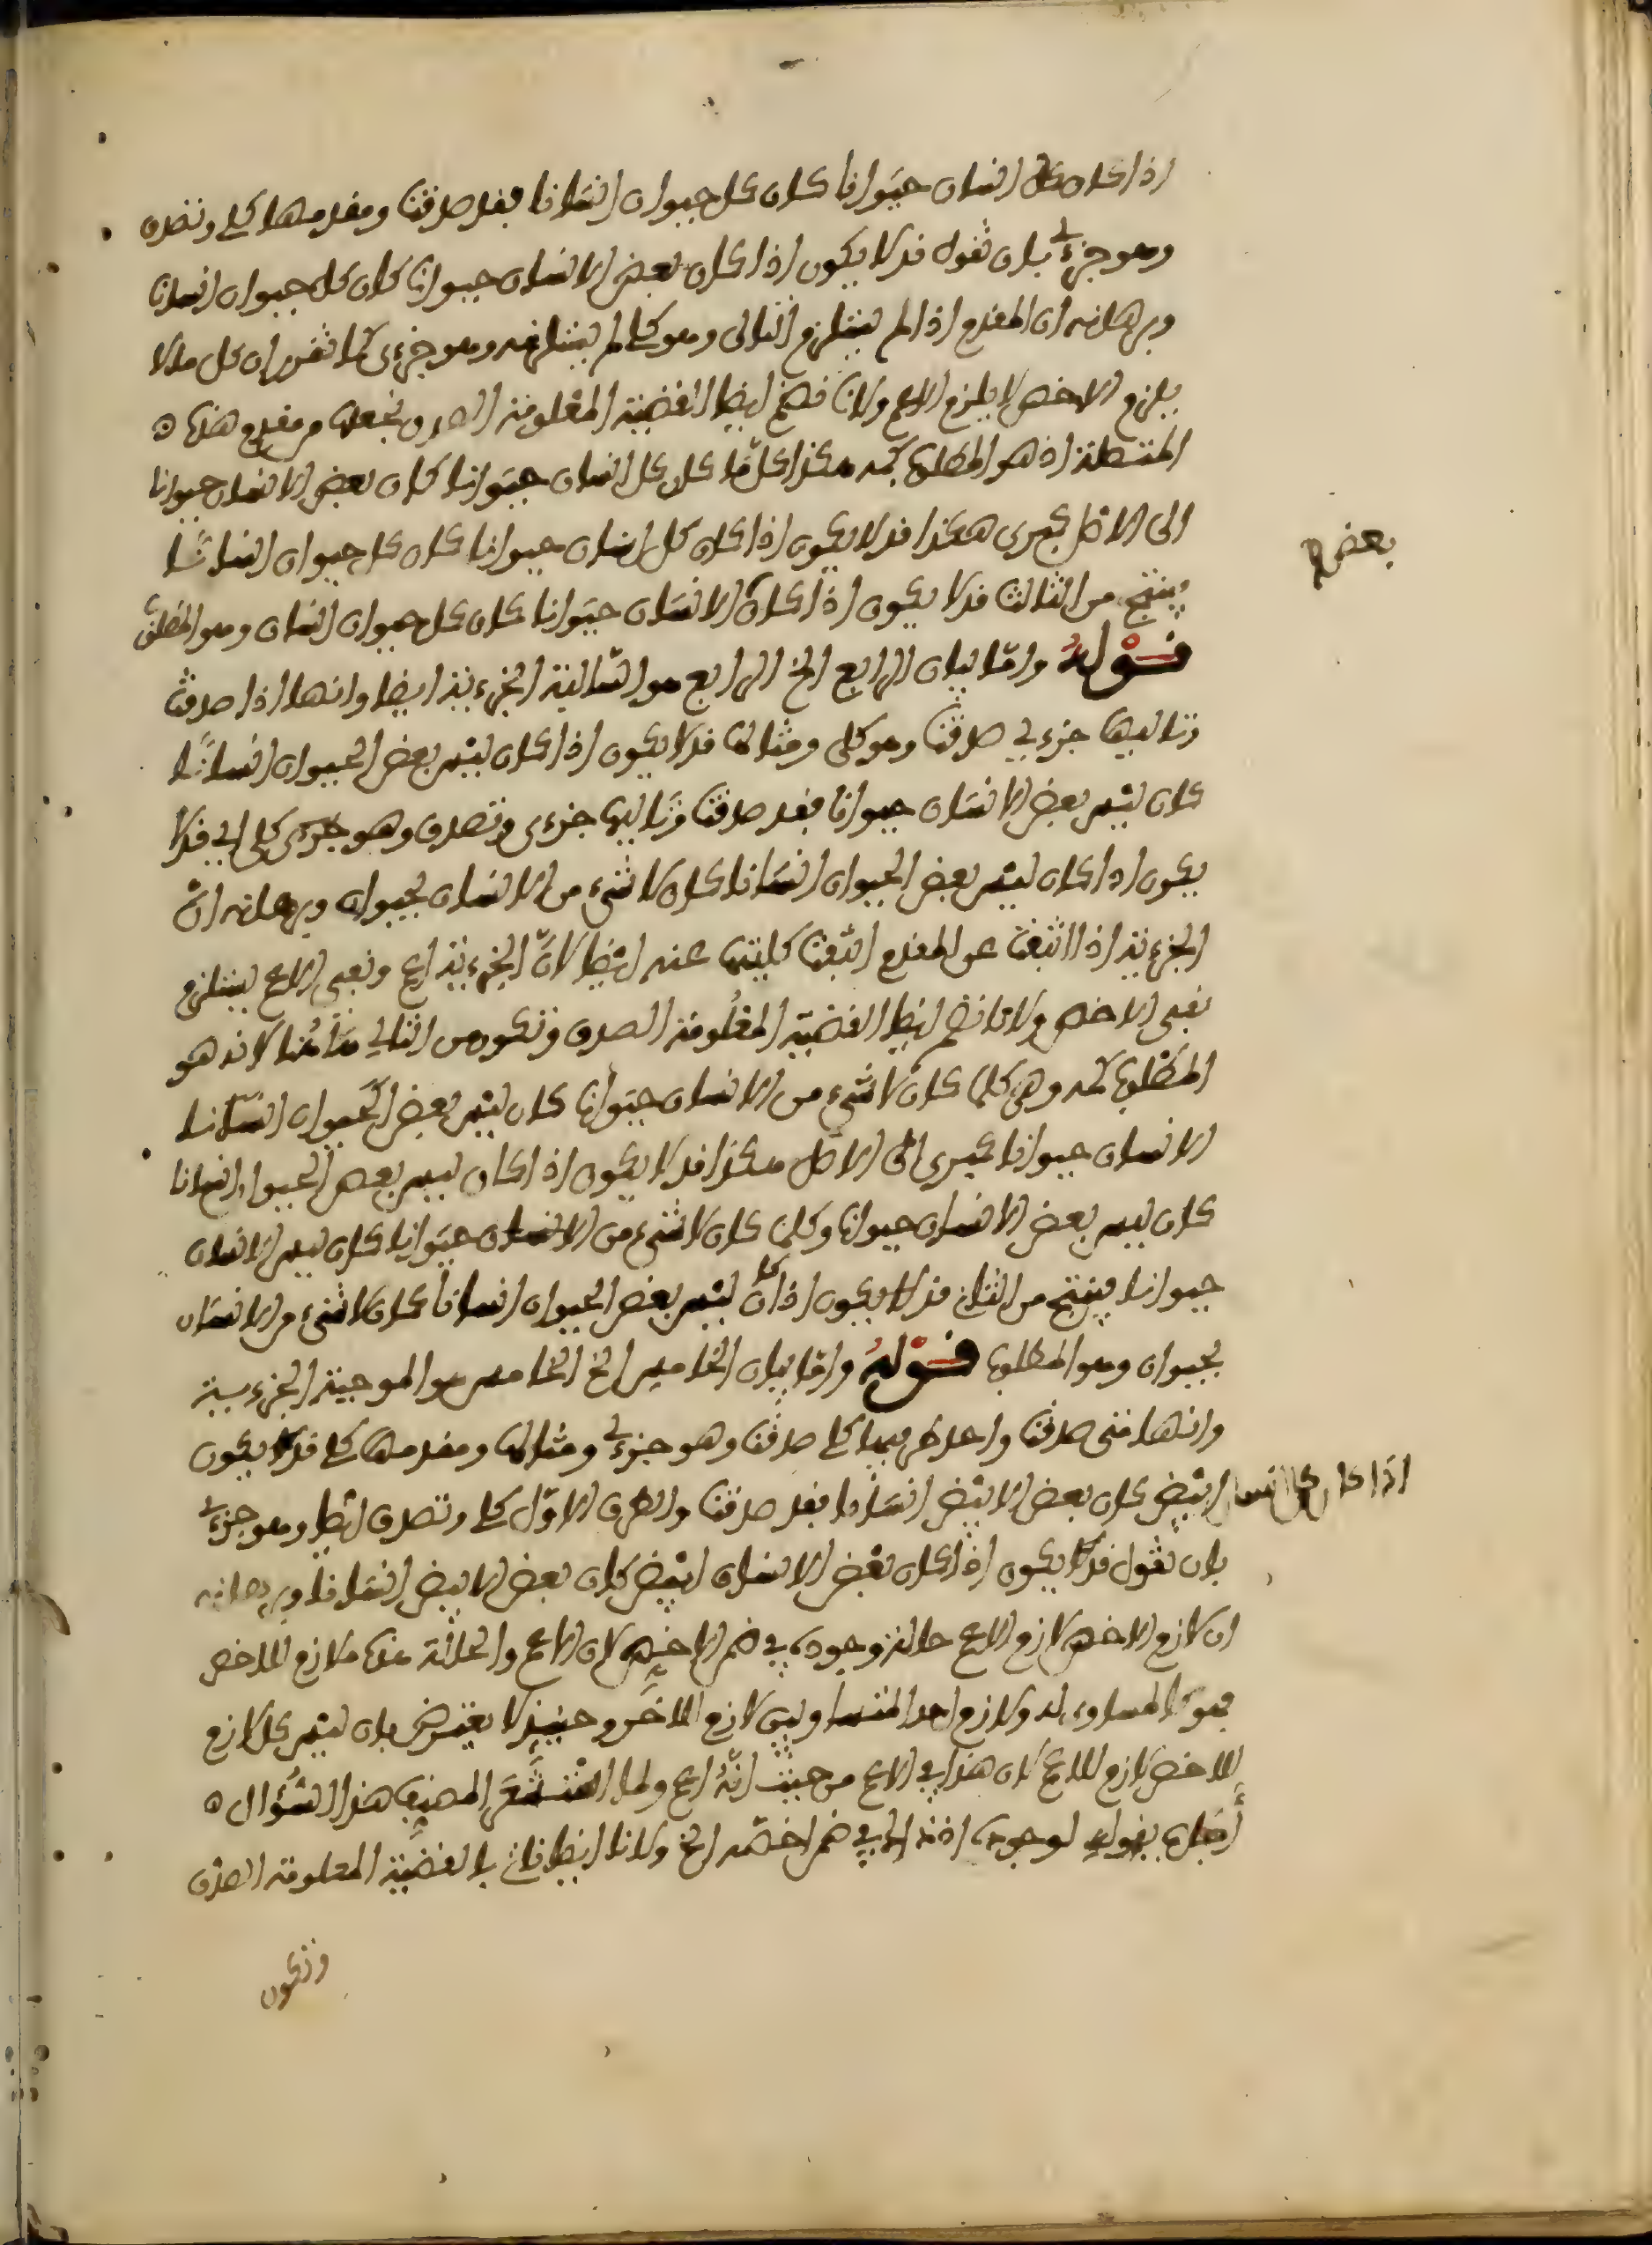 اذا كان كل انسان حيوانا كان كل حيوان انسانا فقد صدقت ومقدمها كلي وتصدق
وهو جزءي بان تقول قد لا يكون اذا كان بعض الانسان حيوانا كان كل حيوان انسانا
وبرهانه ان المقدم اذا لم يستلزم التالي وهو كلي لم يستلزمه وهو جزءي كما تقرر ان كل ما لا
يلزم الاخص لا يلزم الاعم ولانا نضم ايضا القضية المعلومة الصدق نجعلها من مقدم هذه
المتصلة اذ هو المطلوب كمه هكذا كلما كان كل انسان حيوانا كان بعض الانسان حيوانا
الى الاصل كبرى هكذا قد لا يكون اذا كان كل انسان حيوانا كان كل حيوان انسانا
ينتج من الثالث قد لا يكون اذا كان الانسان حيوانا كان كل حيوان انسان وهو المطلوب
بعض
قوله واما بيان الرابع الخ الرابع هو السالبة الجزءية ايضا وانها اذا صدقت
وتاليها جزءي صدقت وهو كلي ومثالها قد لا يكون اذا كان ليس بعض الحيوان انسانا
كان ليس بعض الانسان حيوانا فقد صدقت وتاليها جزءي وتصدق وهو كلي اي قد لا
يكون اذا كان ليس بعض الحيوان انسانا كان لا شيء من الانسان بحيوان وبرهانه ان
الجزءية اذا انتفت عن المقدم انتفت كليتها عنه ايضا لان الجزءية اعم ونفي الاعم يستلزم
نفي الاخص ولانا نضم ايضا القضية المعلومة الصدق وتكون من التالي هنا لانه هو
المطلوب كمه وهي كلما كان لا شيء من الانسان حيوانا كان ليس بعض الحيوان انسانا
الانسان حيوانا كبرى الى الاصل هكذا قد لا يكون اذا كان ليس بعض الحيوان انسانا
كان ليس بعض الانسان حيوانا وكلما كان لا شيء من الانسان حيوانا كان ليس الانسان
حيوانا ينتج من الثاني قد لا يكون اذا كان ليس بعض الحيوان انسانا كان لا شيء من الانسان
بحيوان وهو المطلوب قوله واما بيان الخامس الخ الخامس هو الموجبة الجزءية
وانها متى صدقت واحد طرفيها كلي صدقت وهو جزءي ومثالها ومقدمها كلي قد يكون
اذا كان كل انسان ابيض كان بعض الابيض انسانا فقد صدقت والطرف الاول كلي وتصدق ايضا وهو جزءي
بان تقول قد يكون اذا كان بعض الانسان ابيض كان بعض الابيض انسانا وبرهانه
ان لازم الاخص لازم الاعم حالة وجوده في ضم الاخص لان الاعم والحالة هذه ملازم للاخص
فهو كالمساوي له ولازم احد المتساويين لازم للاخر وحينئذ لا يعترض بان ليس كل لازم
للاخص لازم للاعم لان هذا في الاعم من حيث انه اعم ولما استشعر المصنف هذا السؤال
اجاب بقوله لوجوده اذ ذاك في ضم اخصه الخ ولانا ايضا ناتي بالقضية المعلومة الصدق
وتكون